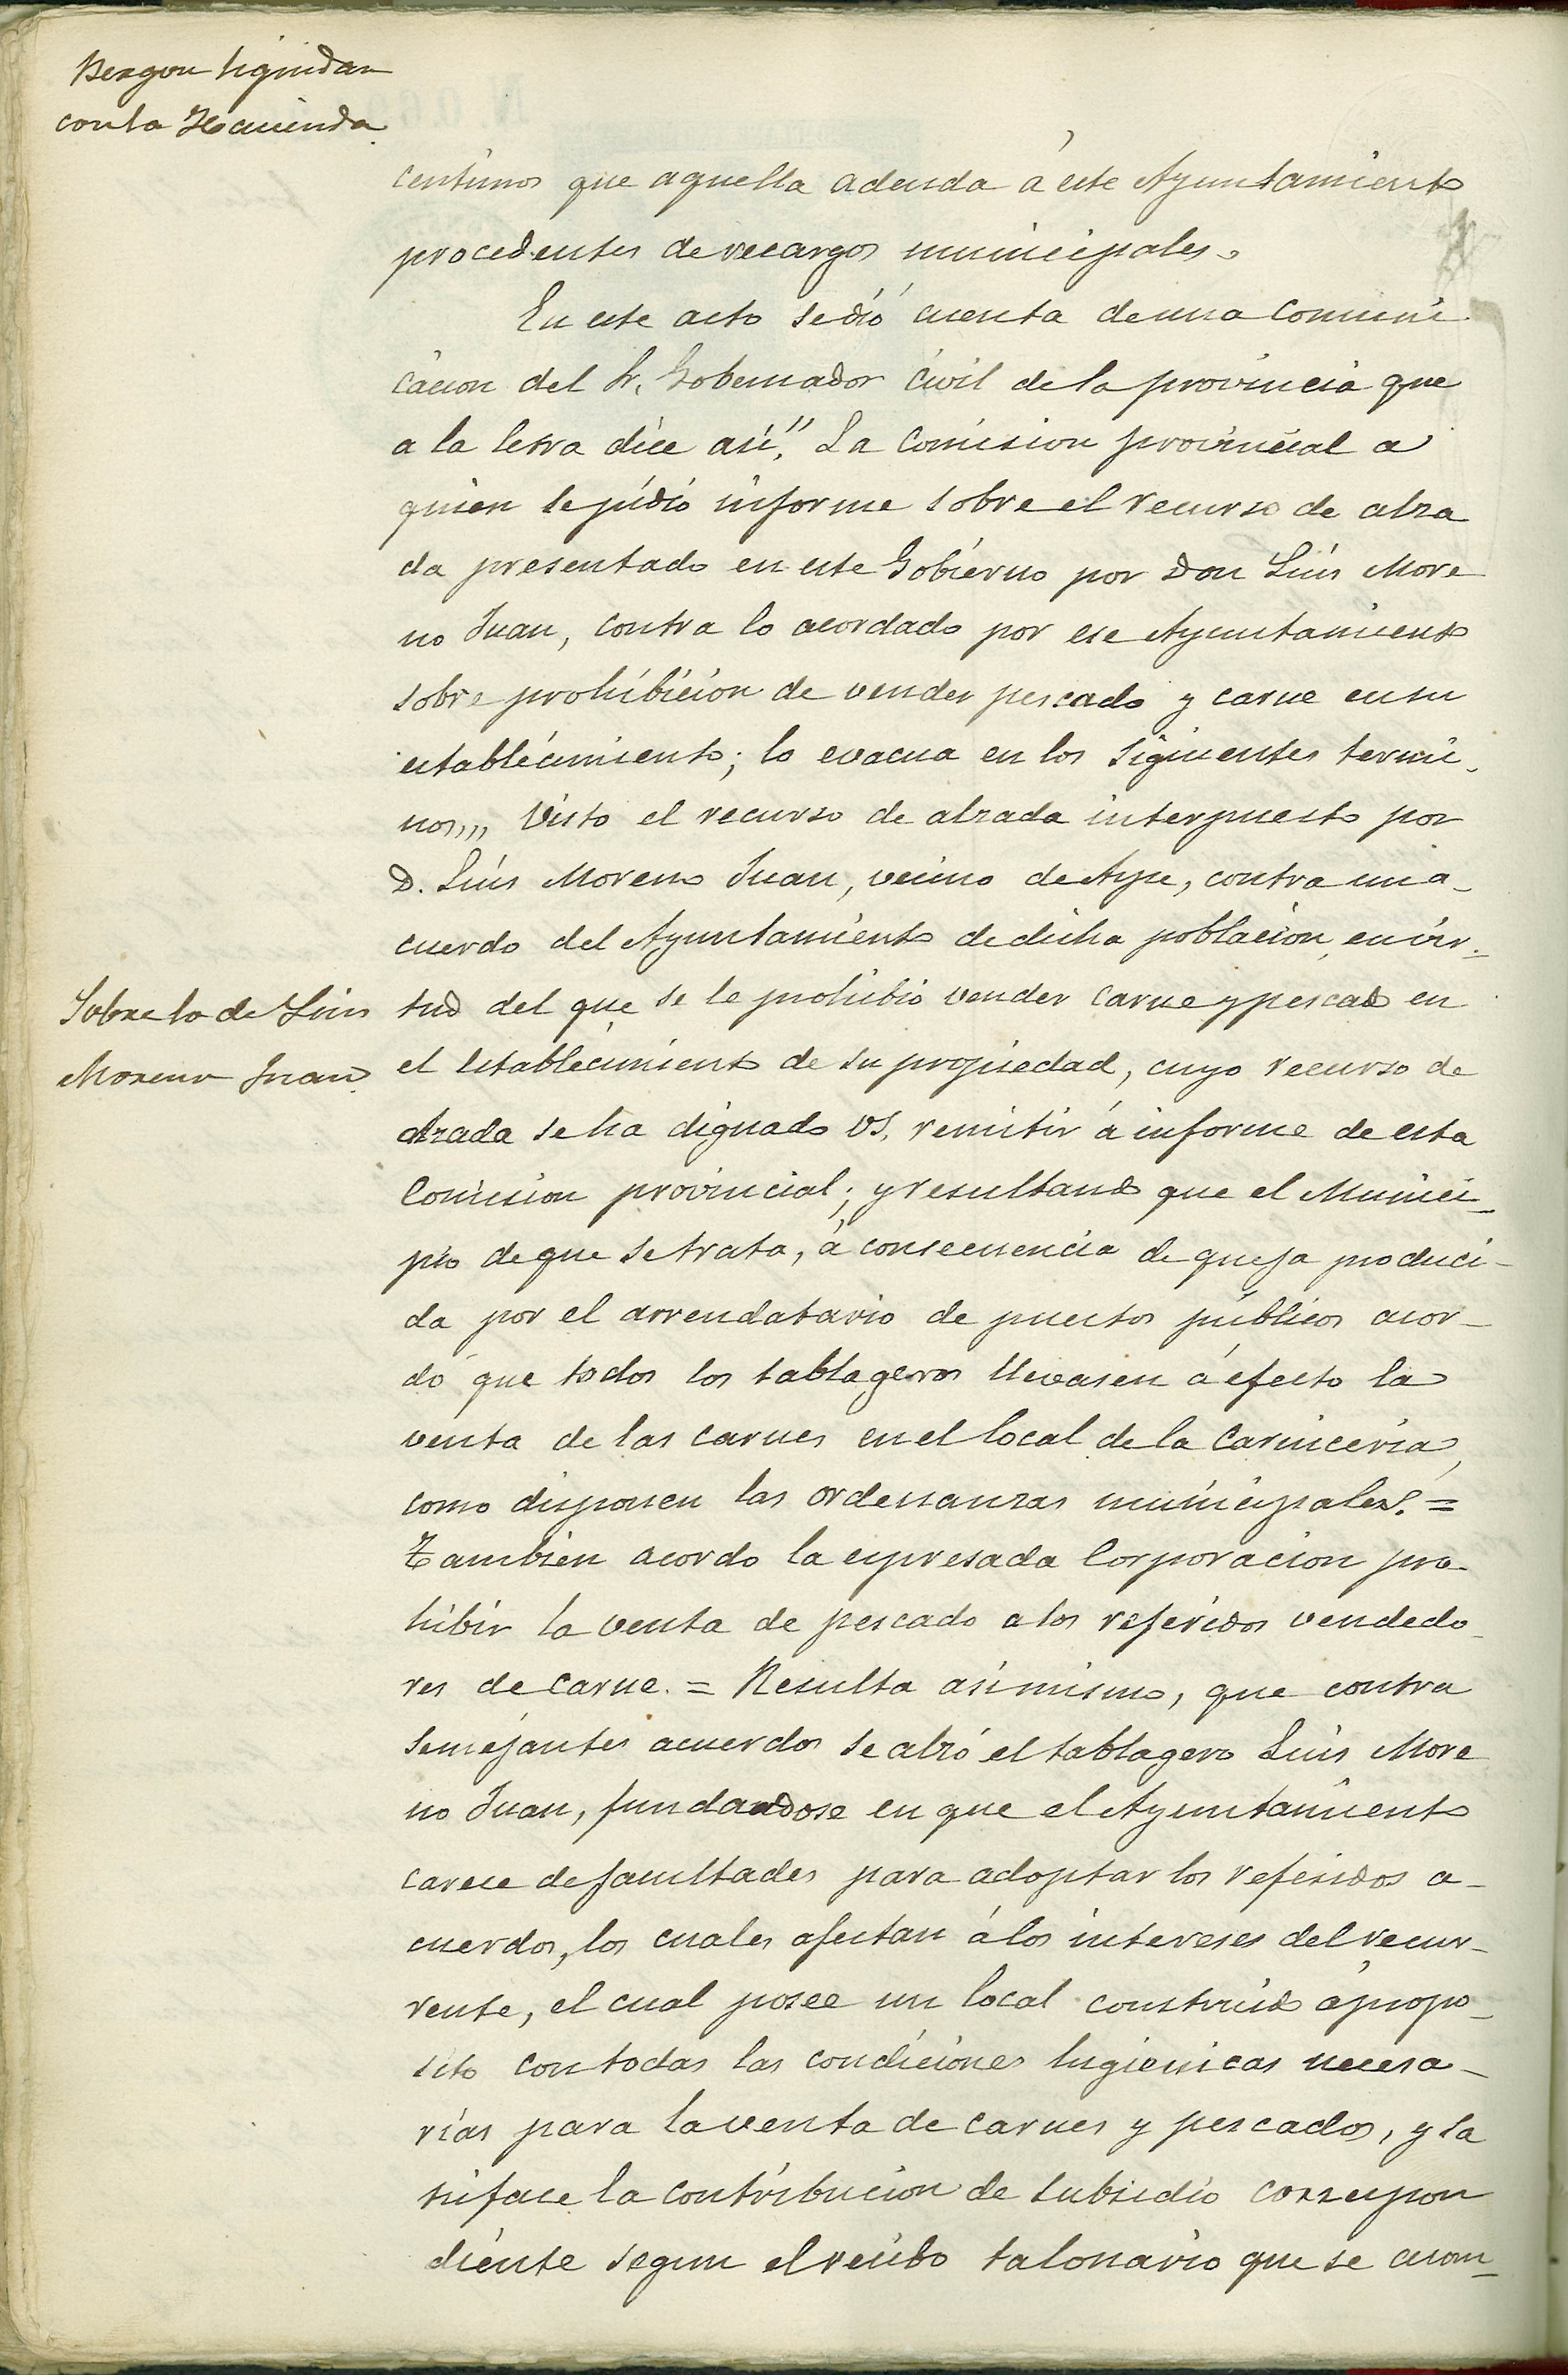 liquidar
con la Hacienda
centimos que aquella adeuda á este Ayuntamiento
procedentes de recargos municipales.
En este acto se dió cuenta de una comuni
cacion del Sr. Gobernador Civil de la provincia que
a la letra dice asi." La Comision provincial a
quien se pidió informe sobre el recurso de alza
da presentado en este Gobierno por Don Luis More
no Juan, contra lo acordado por ese Ayuntamiento
sobre prohibicion de vender pescado y carne en su
establecimiento; lo evacua en los siguientes termi-
nos,,, Visto el recurso de alzada interpuesto por
D. Luis Moreno Juan, vecino de Aspe, contra un a-
cuerdo del Ayuntamiento de dicha poblacion, en vir-
Sobre lo de Luis
Moreno Juan
tud del que se le prohibió vender carne y pescado en
el establecimiento de su propiedad, cuyo recurso de
alzada se ha dignado VS. remitir á informe de esta
Comision provincial; y resultando que el Munici-
pio de que se trata, á consecuencia de queja produci-
da por el arrendatario de puestos públicos acor-
dó que todos los tablageros llevasen á efecto la
venta de las carnes en el local de la Carniceria,
como disponen las ordenanzas municipales. =
Tambien acordo la espresada Corporacion pro-
hibir la venta de pescado a los referidos vendedo-
res de carne. = Resulta asimismo, que contra
semejantes acuerdos se alzó el tablagero Luis More
no Juan, fundandose en que el Ayuntamiento
carece de facultades para adoptar los referidos a-
cuerdos, los cuales afectan á los intereses del recur-
rente, el cual posee un local construido á propo-
sito con todas las condiciones higienicas necesa-
rias para la venta de carnes y pescados, y sa
tisface la contribucion de subsidio correspon
diente segun el recibo talonario que se acom-